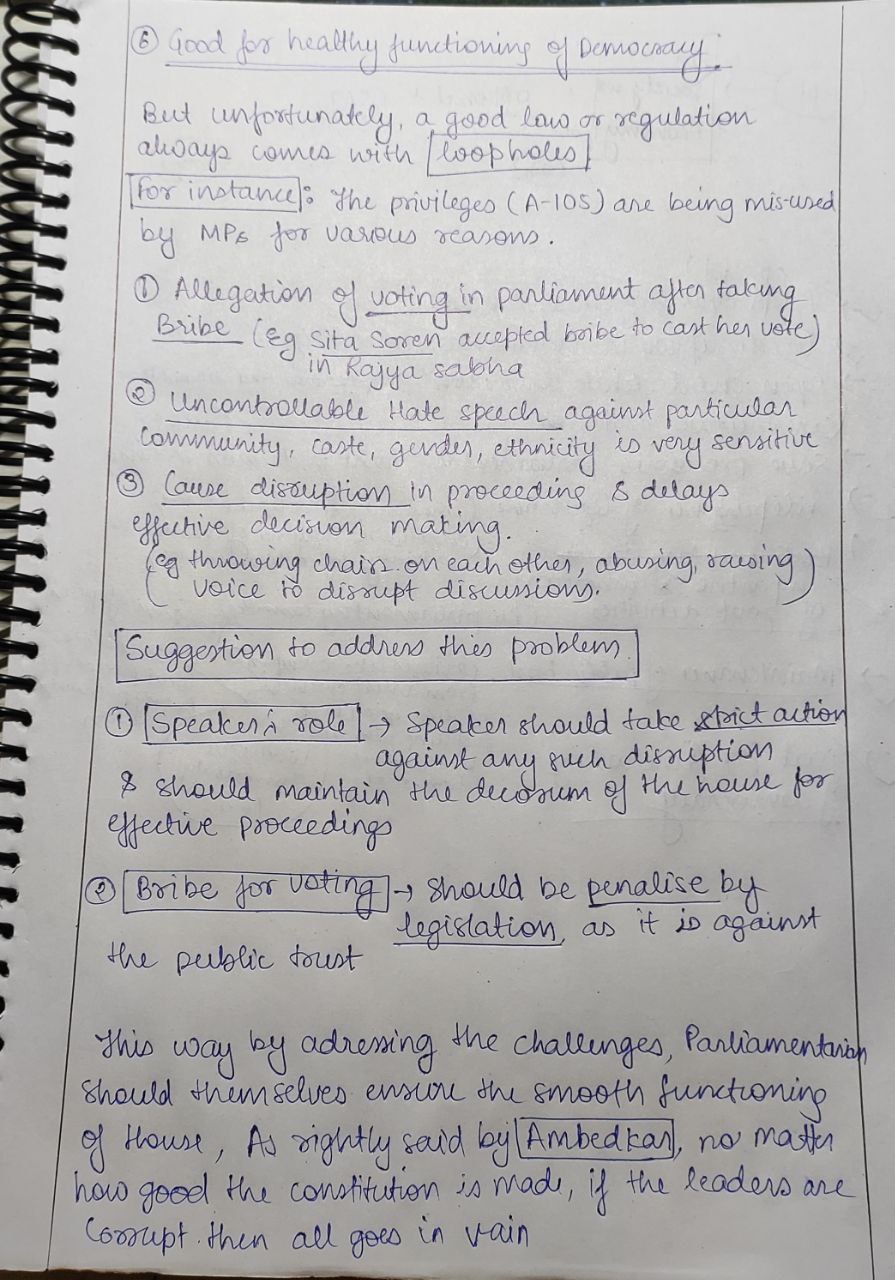 ⑥ Good for healthy functioning of Democracy:
But unfortunately, a good law or regulation
always comes with loopholes
For instance: The privileges (A-105) are being mis-used
by MPs for various reasons.
① Allegation of voting in parliament after taking
Bribe (Eg Sita Soren accepted bribe to cast her vote)
in Rajya sabha
②
Uncontrollable Hate speech against particular
Community, caste, gender, ethnicity is very sensitive
③ Cause disruption in proceeding & delays
effective decision making.
(eg throwing chairs on each other, abusing, raising)
voice to disrupt discussions.
Suggestion to address this problem
① Speaker's role → Speaker should take strict action
against any such disruption
& should maintain the decorum of the house for
effective proceedings
② Bribe for voting → should be penalise by
legislation, as it is against
the public trust
This way by adressing the challenges, Parliamentarian
should themselves ensure the smooth functioning
of House, As rightly said by Ambedkar, no matter
how good the constitution is made, if the leaders are
Corrupt then all goes in vain